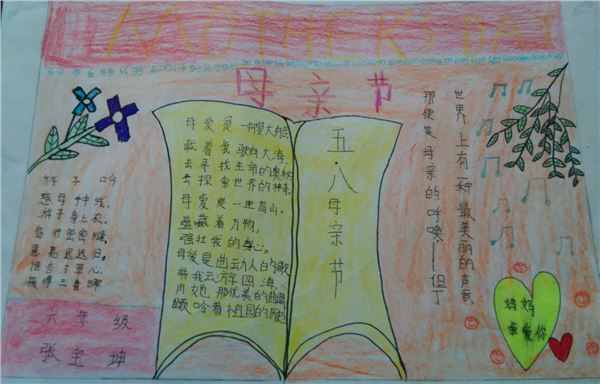 MOTHER'S DAY
母亲节
游子吟
慈母手中线,
游子身上衣。
临行密密缝,
意恐迟迟归。
谁言寸草心,
报得三春晖
六年级
张宝坤
母爱是一艘大船
载着我驶向大海,
去寻找生命的奥秘
去探索世界的神奇
母爱是一座高山,
蕴藏着万物,
强壮我的身心。
母爱是曲动人的歌
带我云游四海
用她那优美的曲调
颂吟着祖国的历史
五·八母亲节
世界上有一种最美丽的声音,
那便是母亲的呼唤——但丁
妈妈
我爱你